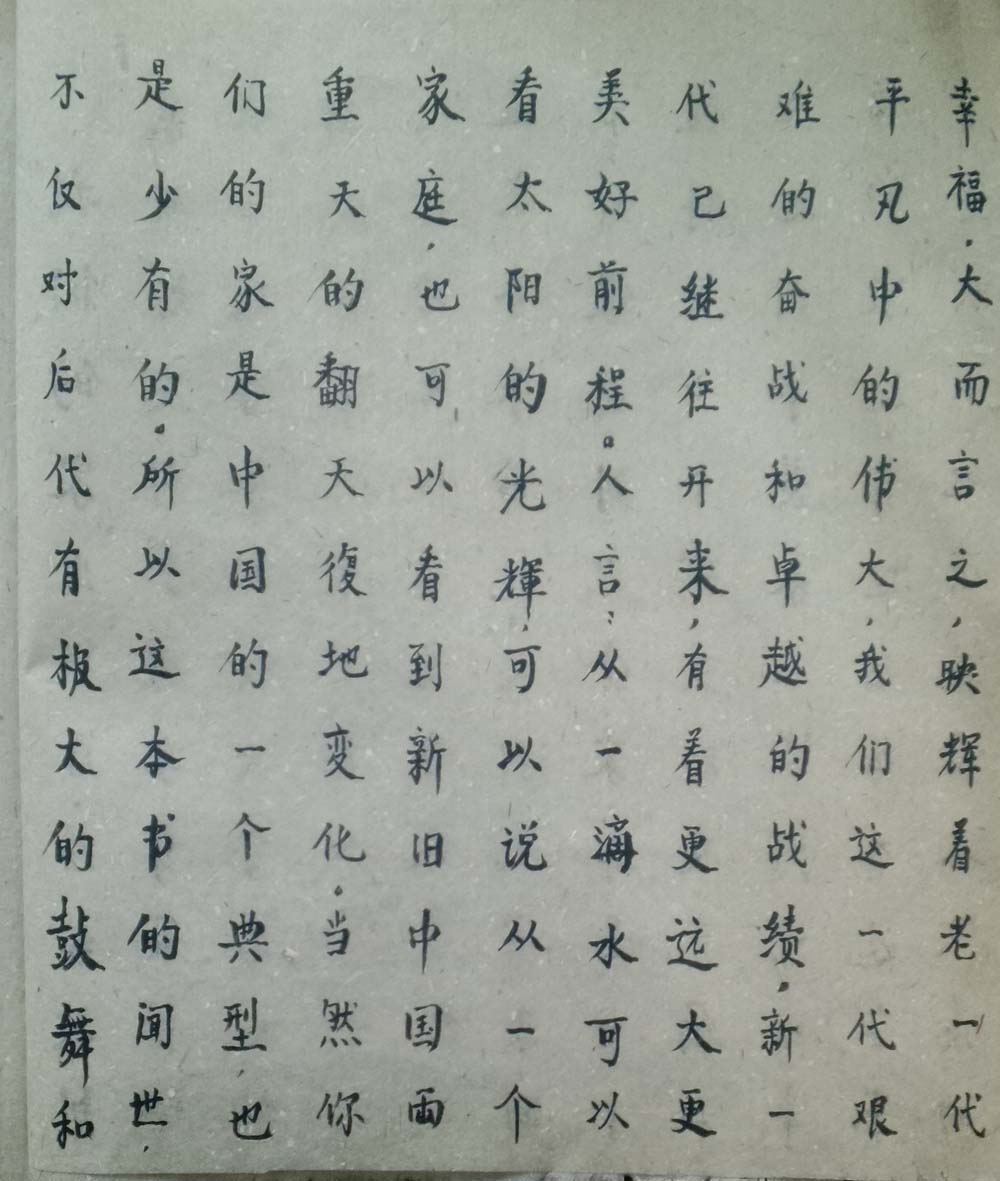 幸福。大而言之,映辉着老一代
平凡中的伟大,我们这一代艰
难的奋战和卓越的战绩。新一
代已继往开来,有着更远大更
美好前程。人言:从一滴水可以
看太阳的光輝,可以说从一个
家庭,也可以看到新旧中国两
重天的翻天復地变化。当然你
们的家是中国的一个典型,也
是少有的。所以这本书的闻世,
不仅对后代有极大的鼓舞和